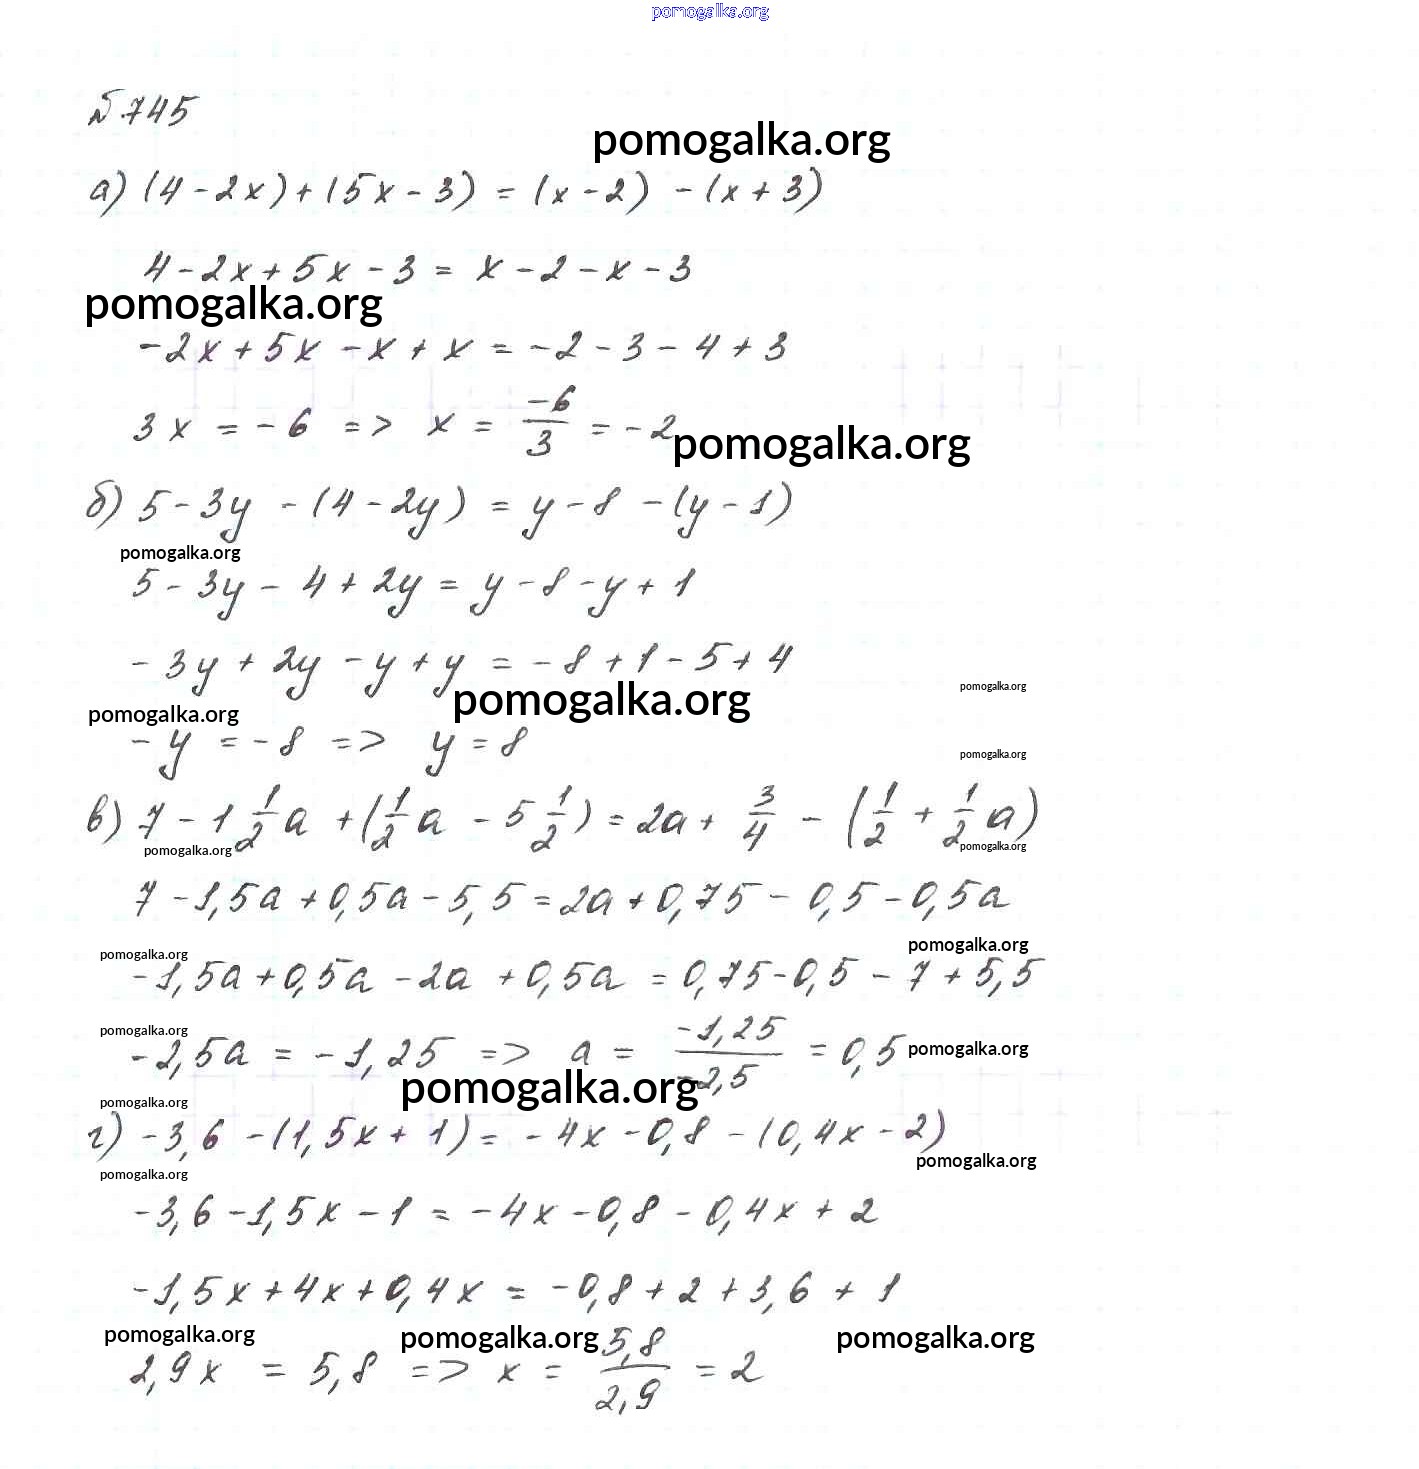 pomogalka.org
№ 745
pomogalka.org
а) (4 - 2x) + (5x - 3) = (x - 2) - (x + 3)
4 - 2x + 5x - 3 = x - 2 - x - 3
pomogalka.org
-2x + 5x - x + x = -2 - 3 - 4 + 3
3x = -6 => x = -6/3 = -2
pomogalka.org
б) 5 - 3y - (4 - 2y) = y - 8 - (y - 1)
pomogalka.org
5 - 3y - 4 + 2y = y - 8 - y + 1
-3y + 2y - y + y = -8 + 1 - 5 + 4
pomogalka.org
pomogalka.org
pomogalka.org
-y = -8 => y = 8
pomogalka.org
в) 7 - 1 1/2 a + (1/2 a - 5 1/2) = 2a + 3/4 - (1/2 + 1/2 a)
pomogalka.org
pomogalka.org
7 - 1,5a + 0,5a - 5,5 = 2a + 0,75 - 0,5 - 0,5a
pomogalka.org
pomogalka.org
-1,5a + 0,5a - 2a + 0,5a = 0,75 - 0,5 - 7 + 5,5
pomogalka.org
-2,5a = -1,25 => a = -1,25/-2,5 = 0,5
pomogalka.org
pomogalka.org
pomogalka.org
г) -3,6 - (1,5x + 1) = -4x - 0,8 - (0,4x - 2)
pomogalka.org
pomogalka.org
-3,6 - 1,5x - 1 = -4x - 0,8 - 0,4x + 2
-1,5x + 4x + 0,4x = -0,8 + 2 + 3,6 + 1
pomogalka.org
pomogalka.org
pomogalka.org
2,9x = 5,8 => x = 5,8/2,9 = 2